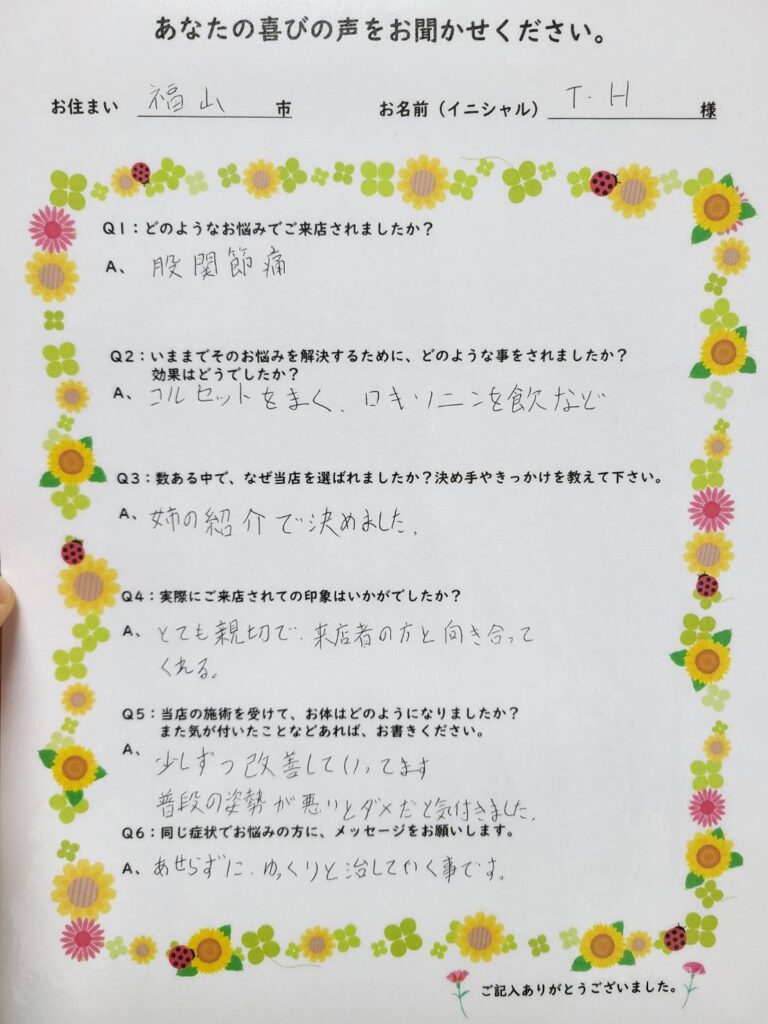 あなたの喜びの声をお聞かせください。
お住まい 福山 市 お名前（イニシャル） T.H 様
Q1：どのようなお悩みでご来店されましたか？
A、 股関節痛
Q2：いままでそのお悩みを解決するために、どのような事をされましたか？
効果はどうでしたか？
A、 コルセットをまく、ロキソニンを飲など
Q3：数ある中で、なぜ当店を選ばれましたか？決め手やきっかけを教えて下さい。
A、 姉の紹介で決めました。
Q4：実際にご来店されての印象はいかがでしたか？
A、 とても親切で、来店者の方と向き合って
くれる。
Q5：当店の施術を受けて、お体はどのようになりましたか？
また気が付いたことなどあれば、お書きください。
A、 少しずつ改善していってます
普段の姿勢が悪いとダメだと気付きました。
Q6：同じ症状でお悩みの方に、メッセージをお願いします。
A、 あせらずに、ゆっくりと治していく事です。
ご記入ありがとうございました。